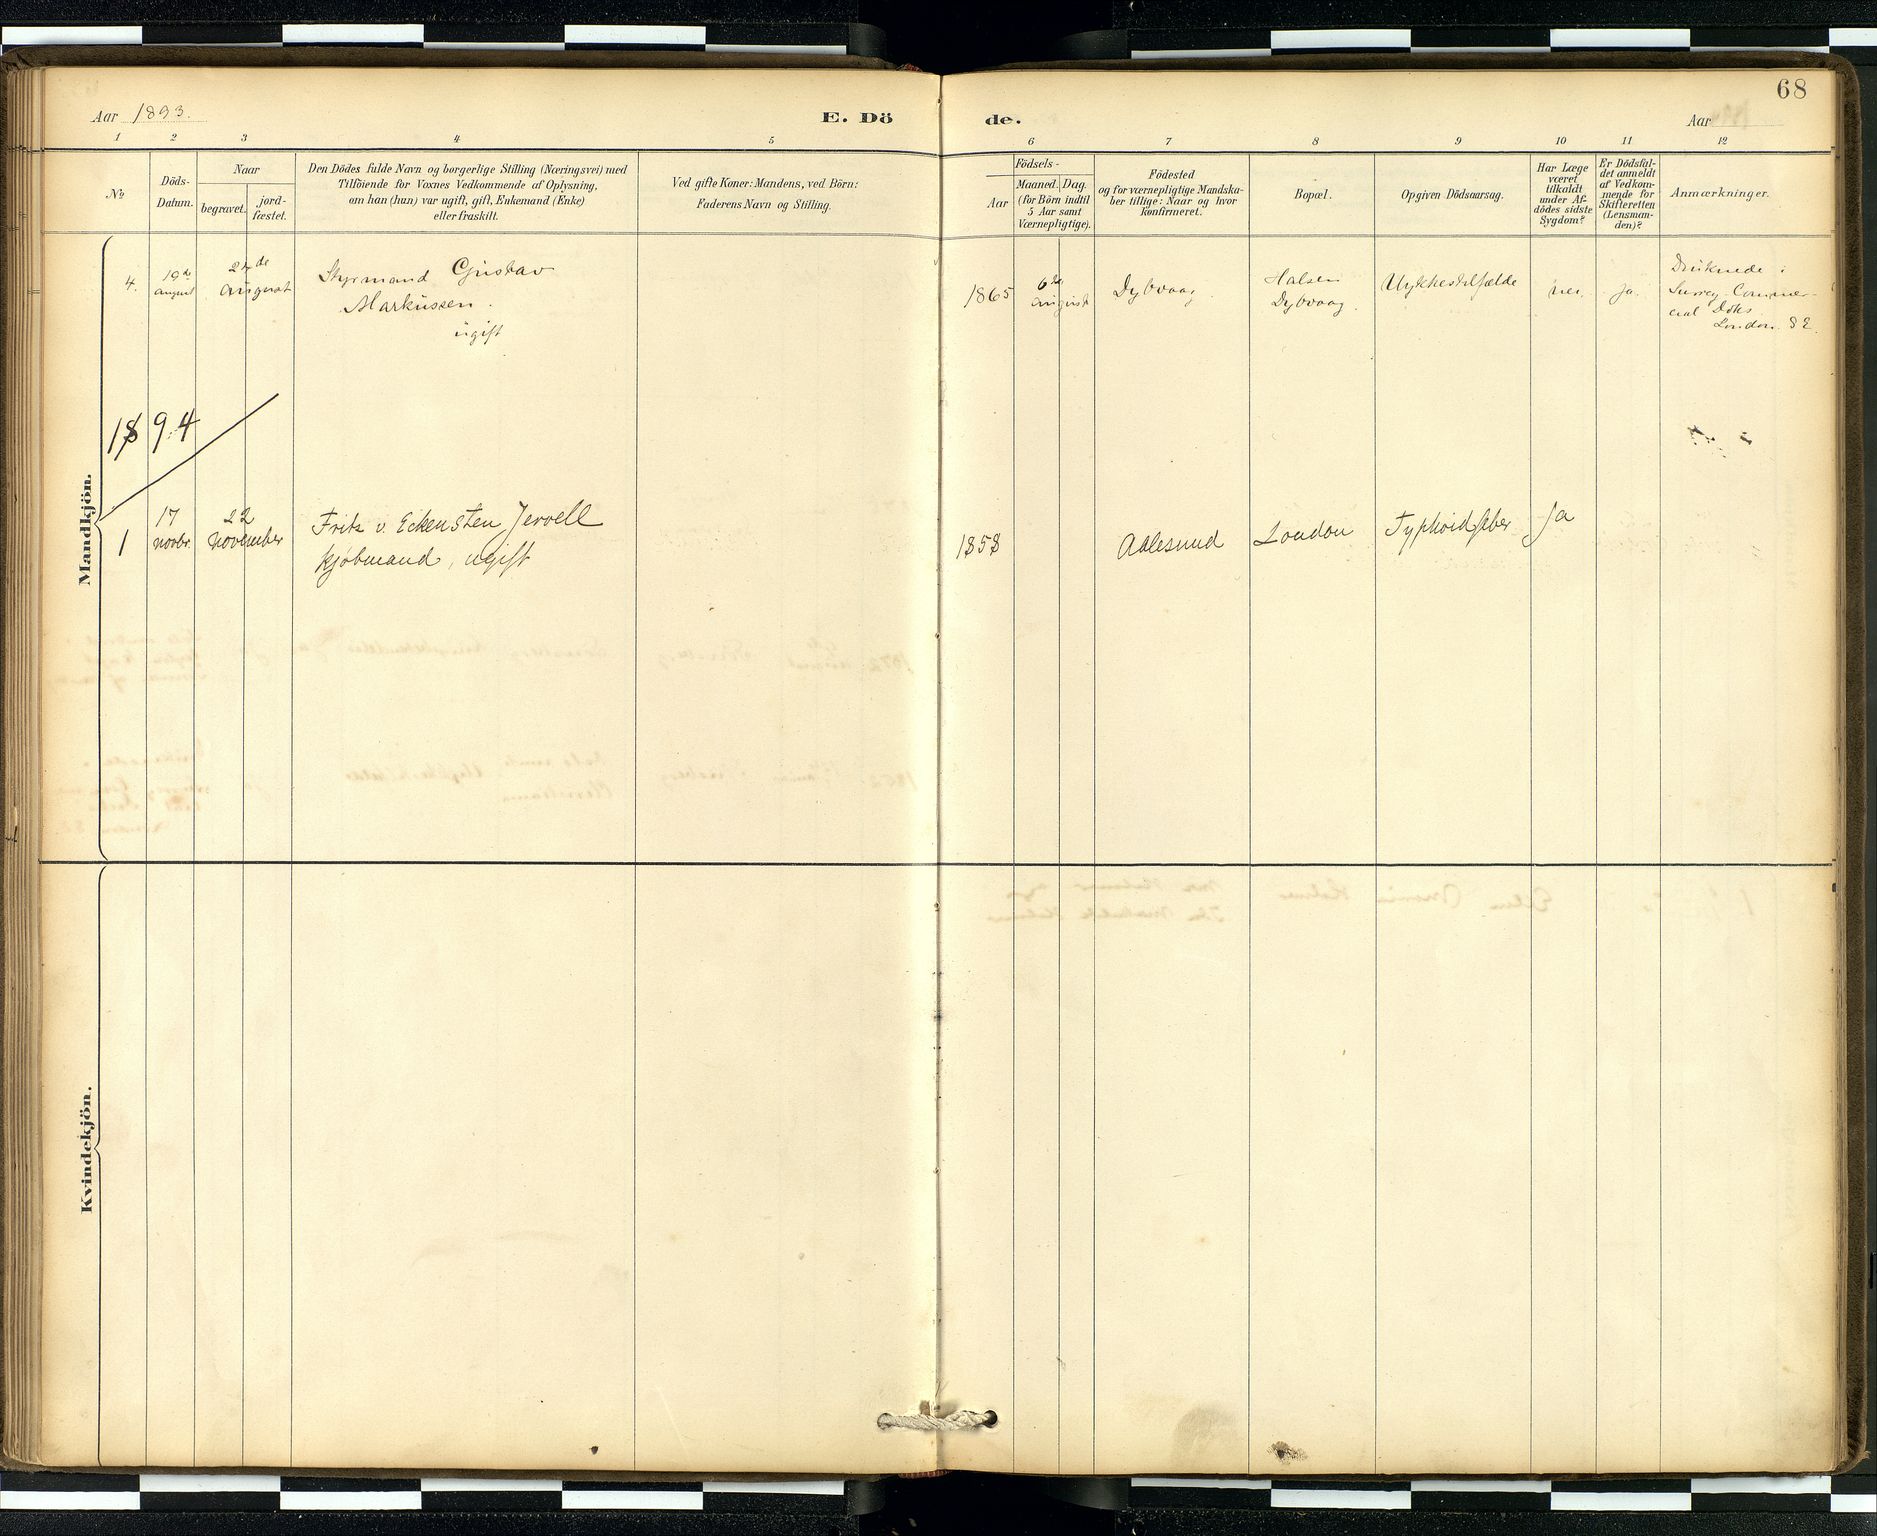 68
Aar 1893.
E. Dö
de.
Aar
1
2
3
4
5
6
7
8
9
10
11
12
No
Döds-
Datum.
Naar
begravet.
jord-
fæstet.
Den Dödes fulde Navn og borgerlige Stilling (Næringsvei) med
Tilföiende for Voxnes Vedkommende af Oplysning,
om han (hun) var ugift, gift, Enkemand (Enke)
eller fraskilt.
Ved gifte Koner: Mandens, ved Börn:
Faderens Navn og Stilling.
Födsels-
Aar
Maaned. Dag.
(for Börn indtil
5 Aar samt
Værnepligtige).
Födested
og for værnepligtige Mandska-
ber tillige: Naar og hvor
konfirmeret.
Bopæl.
Opgiven Dödsaarsag.
Har Læge
været
tilkaldt
under Af-
dödes sidste
Sygdom?
Er Dödsfal-
det anmeldt
af Vedkom-
mende for
Skifteretten
(Lensman-
den)?
Anmærkninger.
Mandkjön.
4.
19de
august
24de
august
Styrmand Gustav
Markussen.
ugift
1865
6te
august
Dybvaag
Halsen
Dybvaag.
Ulykkestilfælde
nei.
ja.
Druknede i
Surrey Commer-
cial Doks
London. S E.
1894
1
17
novbr.
22
november
Fritz v. Eckensten Jervell
kjøbmand, ugift
1858
Aalesund
London
Typhoidfeber
Ja
Kvindekjön.